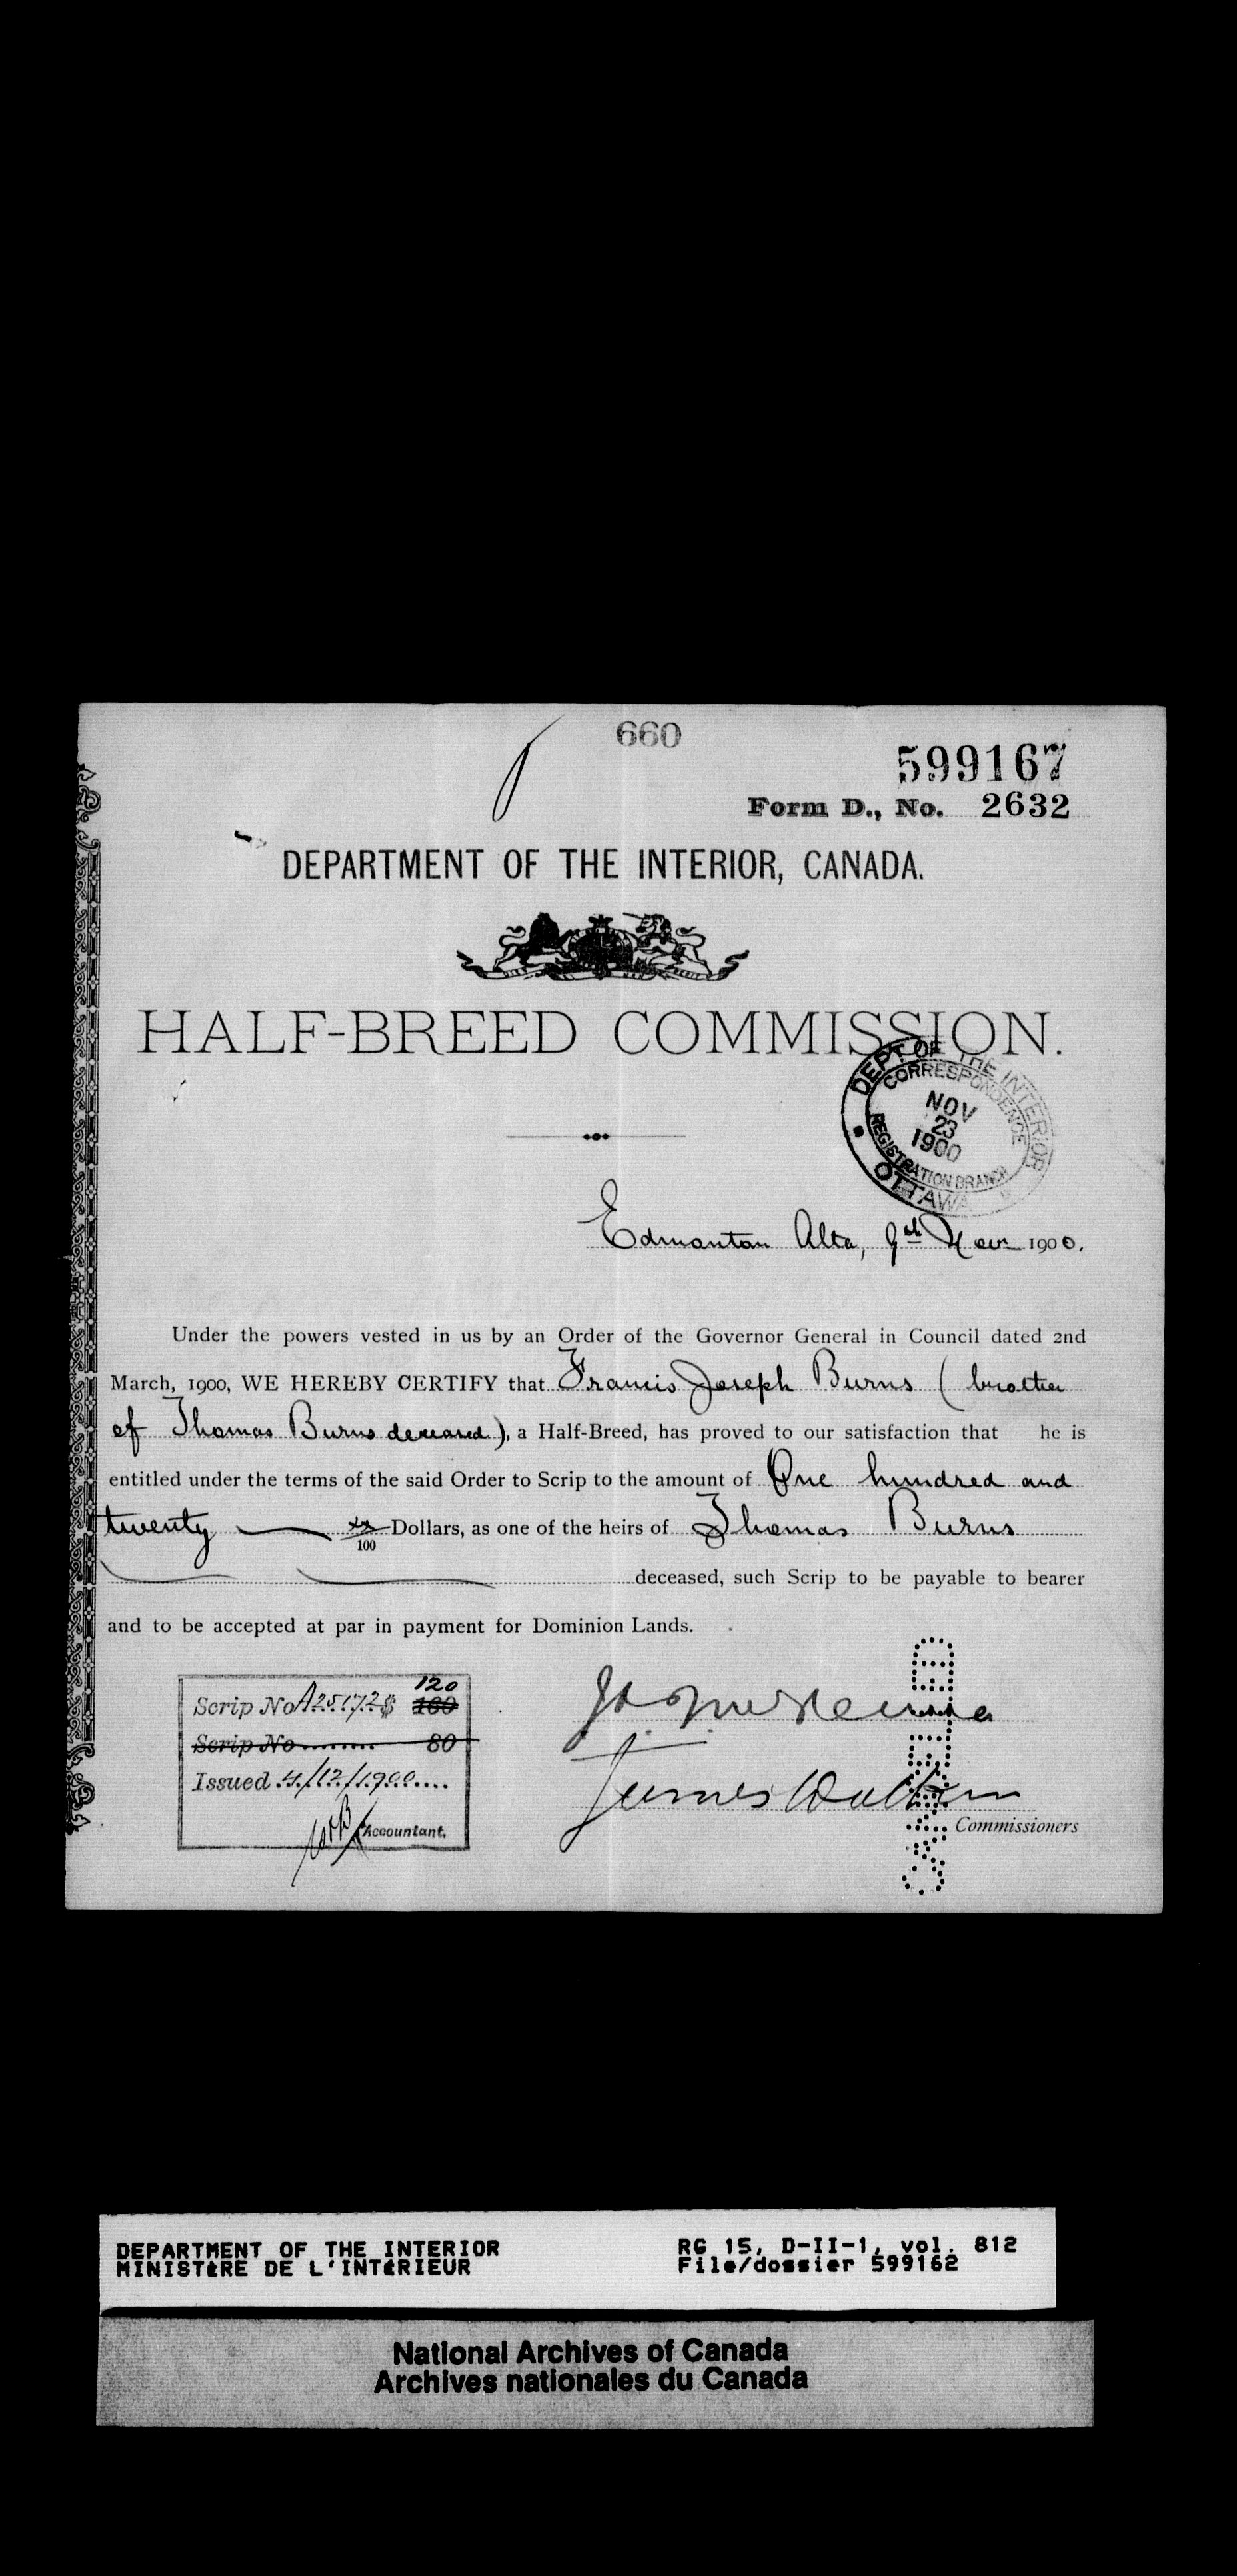 660
599167
Form D., No. 2632
DEPARTMENT OF THE INTERIOR, CANADA.
HALF-BREED COMMISSION.
DEPT OF THE INTERIOR
CORRESPONDENCE
NOV
23
1900
REGISTRATION BRANCH
OTTAWA
Edmonton Alta, 9th Nov 1900.
Under the powers vested in us by an Order of the Governor General in Council dated 2nd
March, 1900, WE HEREBY CERTIFY that Francis Joseph Burns (brother
of Thomas Burns deceased), a Half-Breed, has proved to our satisfaction that he is
entitled under the terms of the said Order to Scrip to the amount of One hundred and
twenty xx/100 Dollars, as one of the heirs of Thomas Burns
deceased, such Scrip to be payable to bearer
and to be accepted at par in payment for Dominion Lands.
120
Scrip No A25172 $ 160
Scrip No ........ 80
Issued 4/12/1900....
Accountant.
James Walker
Commissioners
DEPARTMENT OF THE INTERIOR
MINISTÈRE DE L'INTÉRIEUR
RG 15, D-II-1, vol. 812
File/dossier 599162
National Archives of Canada
Archives nationales du Canada